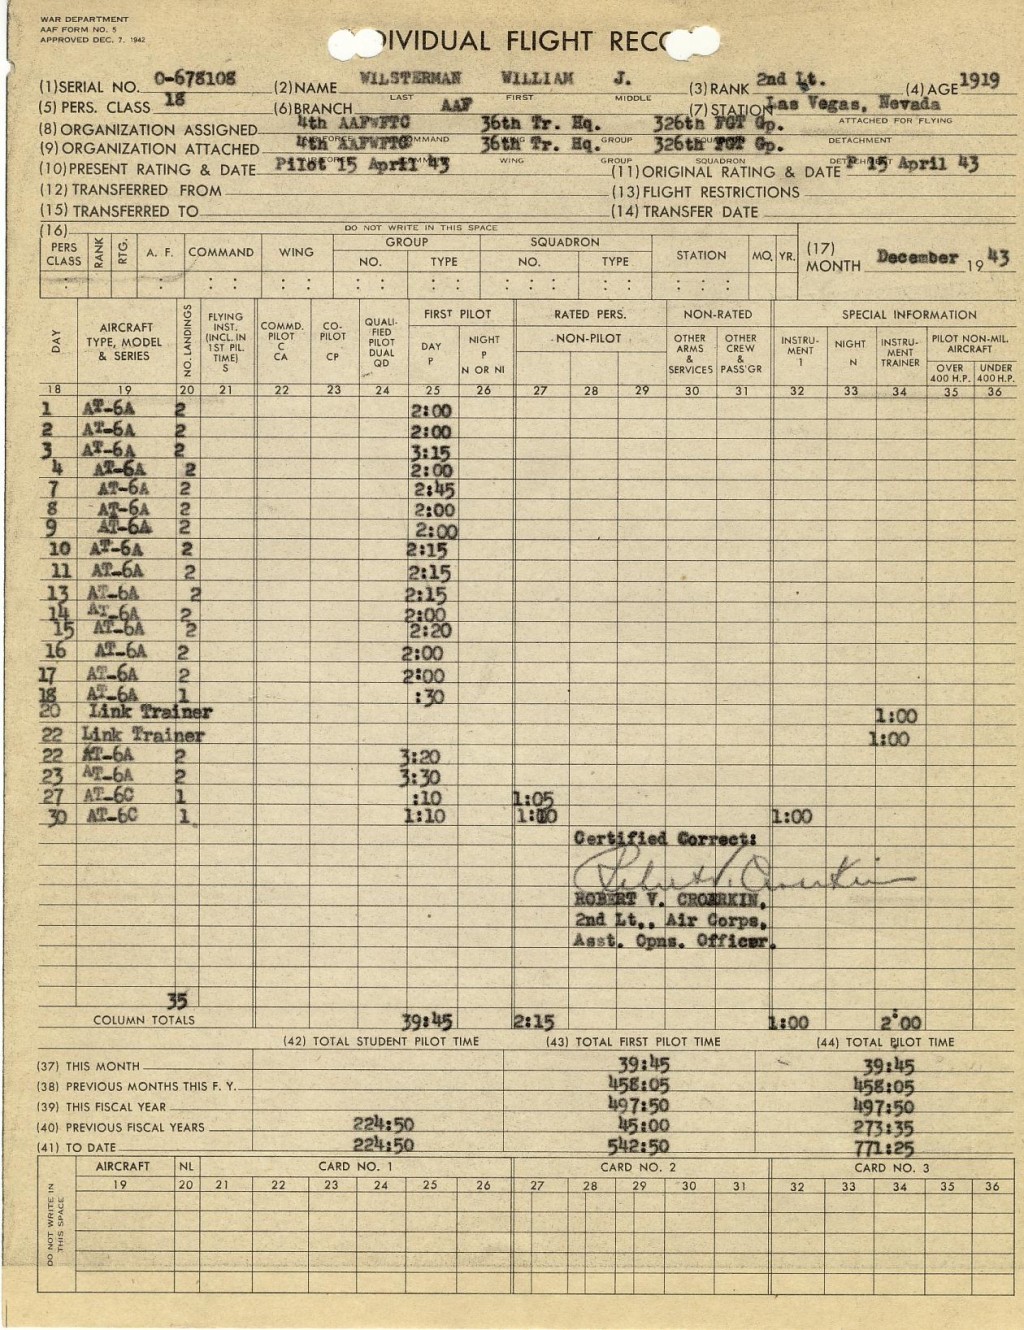 WAR DEPARTMENT
AAF FORM NO. 5
APPROVED DEC. 7, 1942
DIVIDUAL FLIGHT REC
(1) SERIAL NO. O-678108 (2) NAME WILSTERMAN WILLIAM J. (3) RANK 2nd Lt. (4) AGE 1919
LAST FIRST MIDDLE
(5) PERS. CLASS 18 (6) BRANCH AAF (7) STATION Las Vegas, Nevada
(8) ORGANIZATION ASSIGNED 4th AAFWFTC 36th Tr. Hq. 326th FGT Gp. ATTACHED FOR FLYING
(9) ORGANIZATION ATTACHED 4th AAFWFTC 36th Tr. Hq. GROUP 326th FGT Gp. DETACHMENT
(10) PRESENT RATING & DATE Pilot 15 April 43 WING GROUP SQUADRON (11) ORIGINAL RATING & DATE P 15 April 43
(12) TRANSFERRED FROM (13) FLIGHT RESTRICTIONS
(15) TRANSFERRED TO (14) TRANSFER DATE
(16) DO NOT WRITE IN THIS SPACE
PERS CLASS RANK RTG. A. F. COMMAND WING GROUP NO. TYPE SQUADRON NO. TYPE STATION MO. YR. (17) MONTH December 19 43
DAY AIRCRAFT TYPE, MODEL & SERIES NO. LANDINGS FLYING INST. (INCL. IN 1ST PIL. TIME) S COMMD. PILOT C CA CO-PILOT CP QUALIFIED PILOT DUAL QD FIRST PILOT DAY P NIGHT P N OR NI RATED PERS. NON-PILOT NON-RATED OTHER ARMS & SERVICES OTHER CREW & PASS'GR SPECIAL INFORMATION INSTRUMENT I NIGHT N INSTRUMENT TRAINER PILOT NON-MIL. AIRCRAFT OVER 400 H.P. UNDER 400 H.P.
18 19 20 21 22 23 24 25 26 27 28 29 30 31 32 33 34 35 36
1 AT-6A 2 2:00
2 AT-6A 2 2:00
3 AT-6A 2 3:15
4 AT-6A 2 2:00
7 AT-6A 2 2:45
8 AT-6A 2 2:00
9 AT-6A 2 2:00
10 AT-6A 2 2:15
11 AT-6A 2 2:15
13 AT-6A 2 2:15
14 AT-6A 2 2:00
15 AT-6A 2 2:20
16 AT-6A 2 2:00
17 AT-6A 2 2:00
18 AT-6A 1 :30
20 Link Trainer 1:00
22 Link Trainer 1:00
22 AT-6A 2 3:20
23 AT-6A 2 3:30
27 AT-6C 1 :10 1:05
30 AT-6C 1 1:10 1:00
Certified Correct:
Robert V. Croarkin
ROBERT V. CROARKIN,
2nd Lt., Air Corps,
Asst. Opns. Officer.
35
COLUMN TOTALS 39:45 2:15 1:00 2:00
(42) TOTAL STUDENT PILOT TIME (43) TOTAL FIRST PILOT TIME (44) TOTAL PILOT TIME
(37) THIS MONTH 39:45 39:45
(38) PREVIOUS MONTHS THIS F. Y. 458:05 458:05
(39) THIS FISCAL YEAR 497:50 497:50
(40) PREVIOUS FISCAL YEARS 224:50 45:00 273:35
(41) TO DATE 224:50 542:50 771:25
AIRCRAFT NL CARD NO. 1 CARD NO. 2 CARD NO. 3
19 20 21 22 23 24 25 26 27 28 29 30 31 32 33 34 35 36
DO NOT WRITE IN THIS SPACE